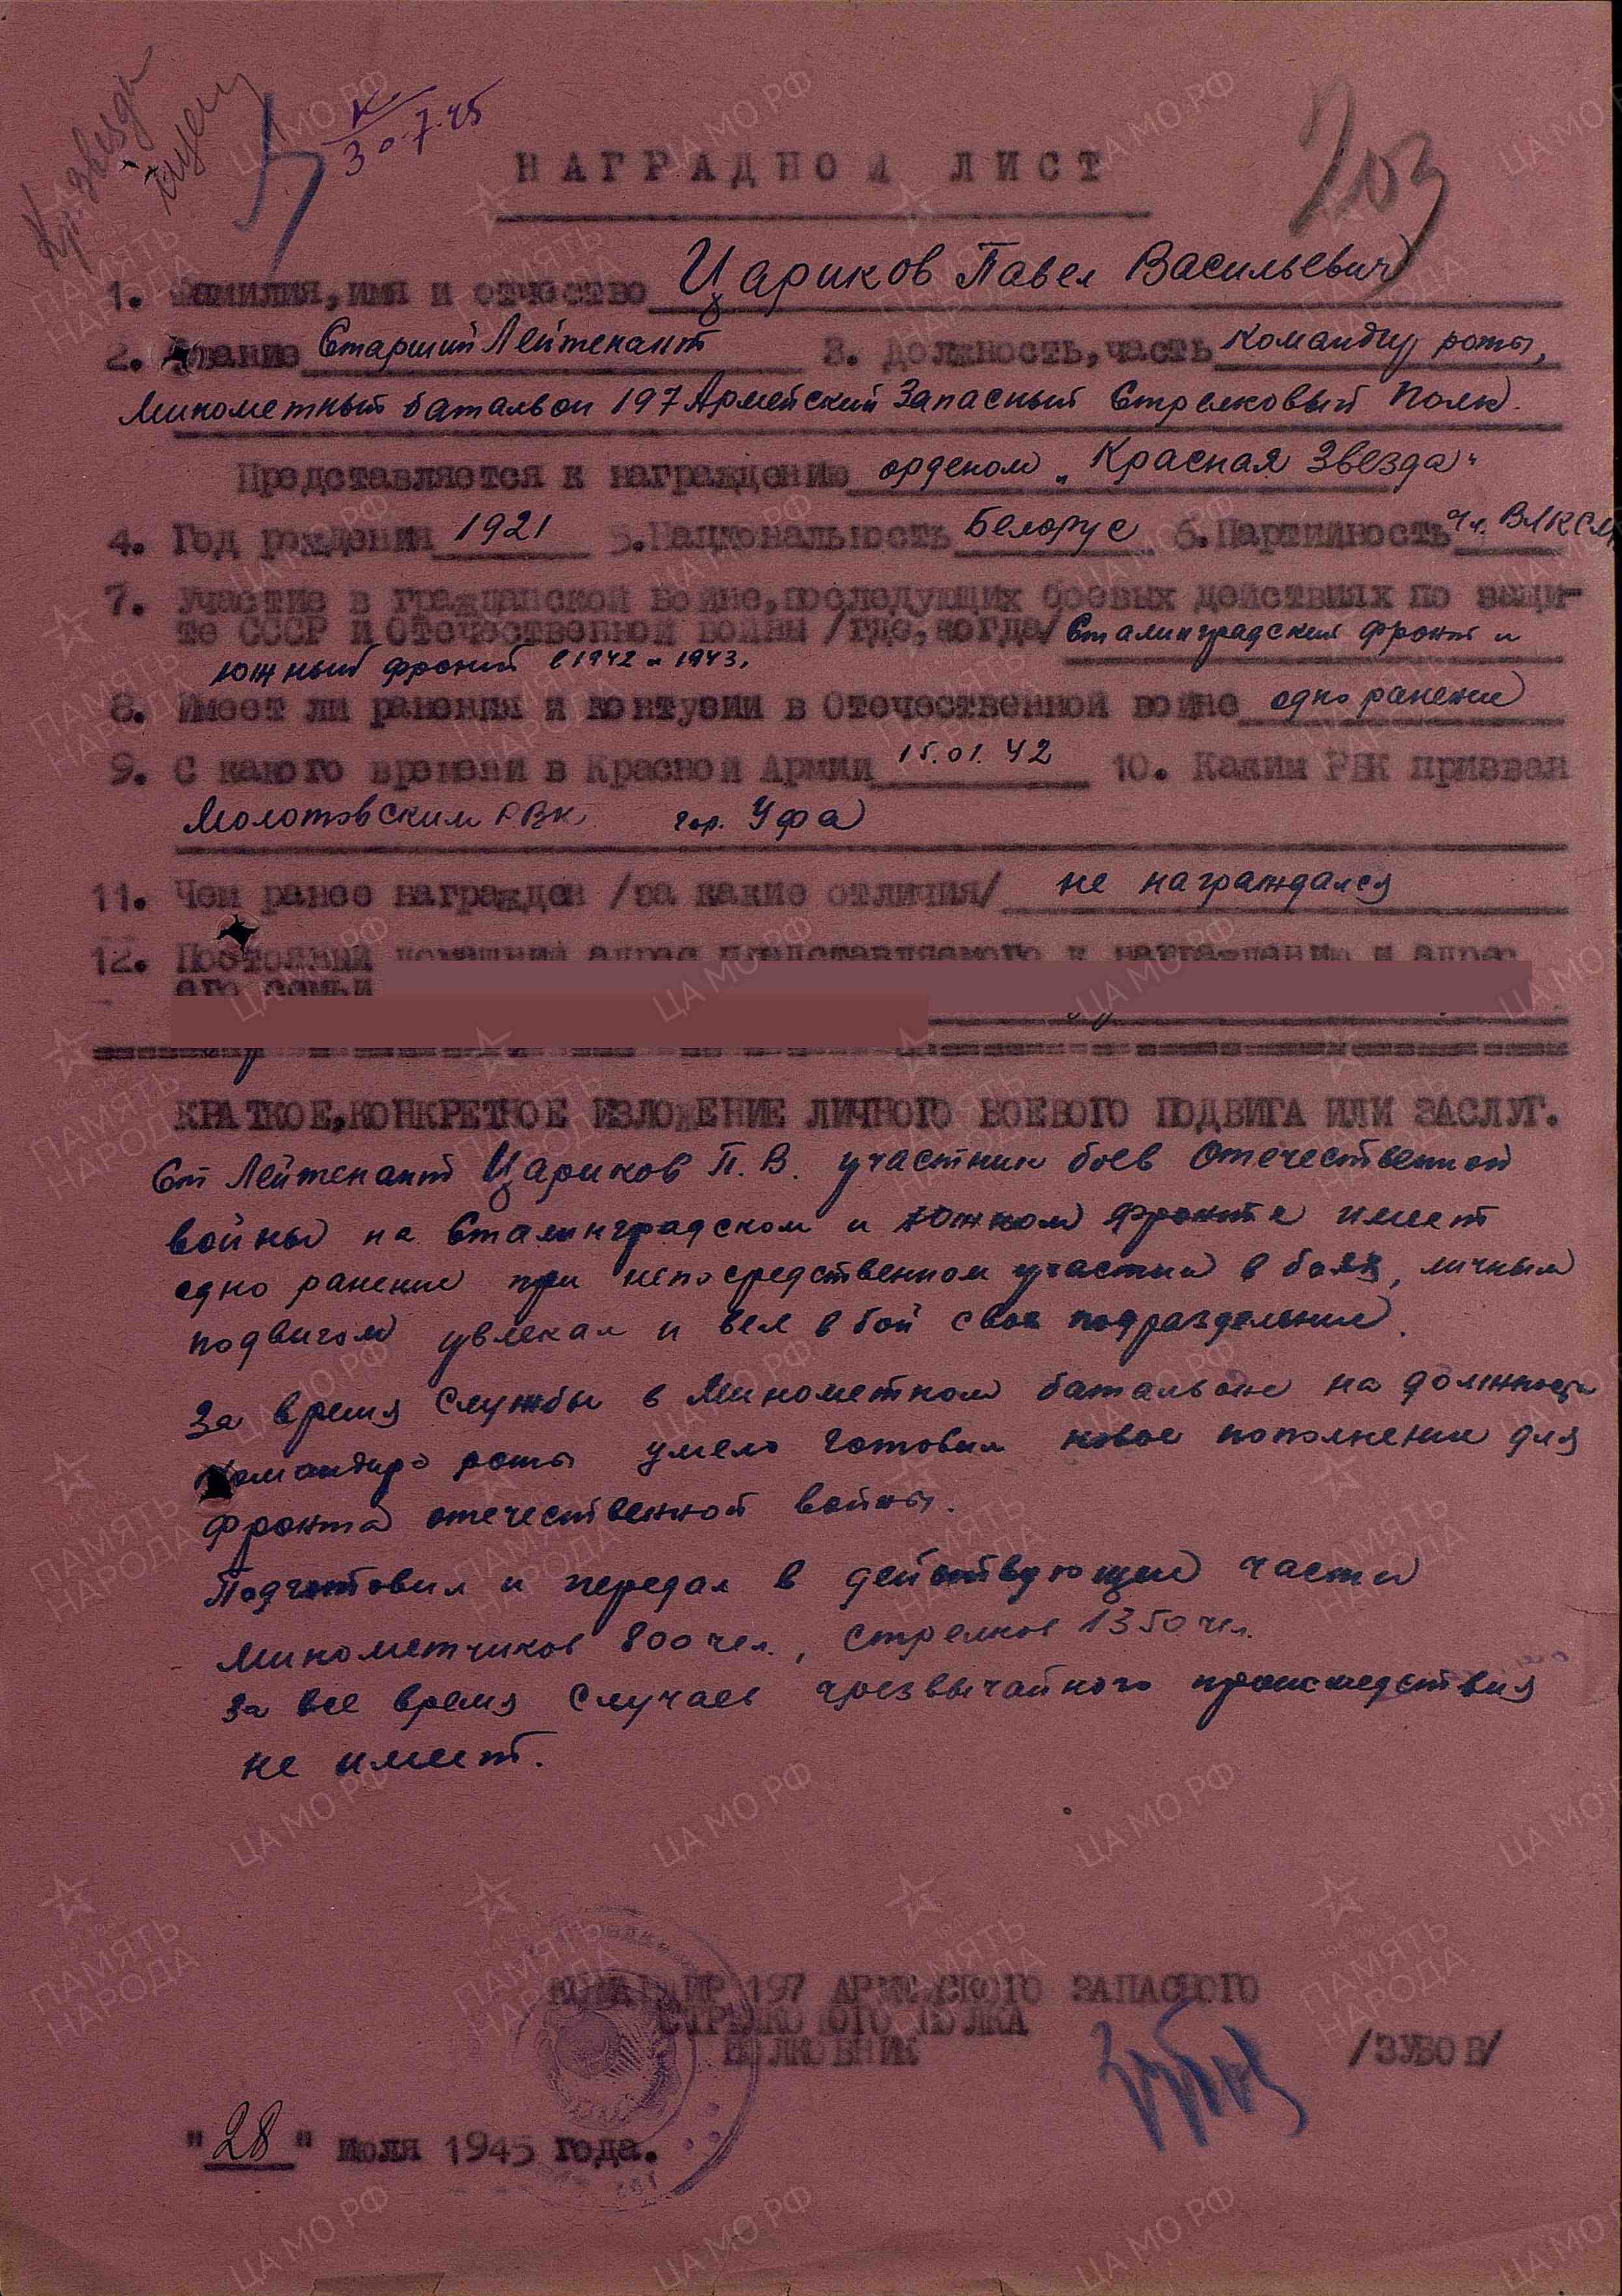 Кр. звезда
203
К
30.7.45
НАГРАДНОЙ ЛИСТ
1. Фамилия, имя и отчество Цариков Павел Васильевич
2. Звание Старший Лейтенант 3. Должность, часть командир роты,
Минометный батальон 197 Армейский Запасный Стрелковый Полк.
Представляется к награждению орденом „Красная Звезда"
4. Год рождения 1921 5. Национальность Белорус 6. Партийность чл. ВЛКСМ
7. Участие в гражданской войне, последующих боевых действиях по защи-
те СССР и Отечественной войны /где, когда/ Сталинградский фронт и
южный фронт в 1942 и 1943.
8. Имеет ли ранения и контузии в Отечественной войне одно ранение
9. С какого времени в Красной Армии 15.01.42 10. Каким РВК призван
Молотовским РВК гор. Уфа
11. Чем ранее награжден /за какие отличия/ не награждался
12. Постоянный домашний адрес представляемого к награждению и адрес
его семьи
КРАТКОЕ, КОНКРЕТНОЕ ИЗЛОЖЕНИЕ ЛИЧНОГО БОЕВОГО ПОДВИГА ИЛИ ЗАСЛУГ.
Ст Лейтенант Цариков П. В. участник боев Отечественной
войны на Сталинградском и Южном фронте имеет
одно ранение при непосредственном участии в боях, личным
подвигом увлекал и вел в бой свое подразделение.
За время службы в Минометном батальоне на должности
командира роты умело готовил новое пополнение для
фронта отечественной войны.
Подготовил и передал в действующие части
минометчиков 800 чел., стрелков 1350 чел.
За все время случаев чрезвычайного происшедствия
не имеет.
КОМАНДИР 197 АРМЕЙСКОГО ЗАПАСНОГО
СТРЕЛКОВОГО ПОЛКА
ПОЛКОВНИК Зубов /ЗУБОВ/
"28" июля 1945 года.
ПАМЯТЬ НАРОДА
ЦА МО РФ